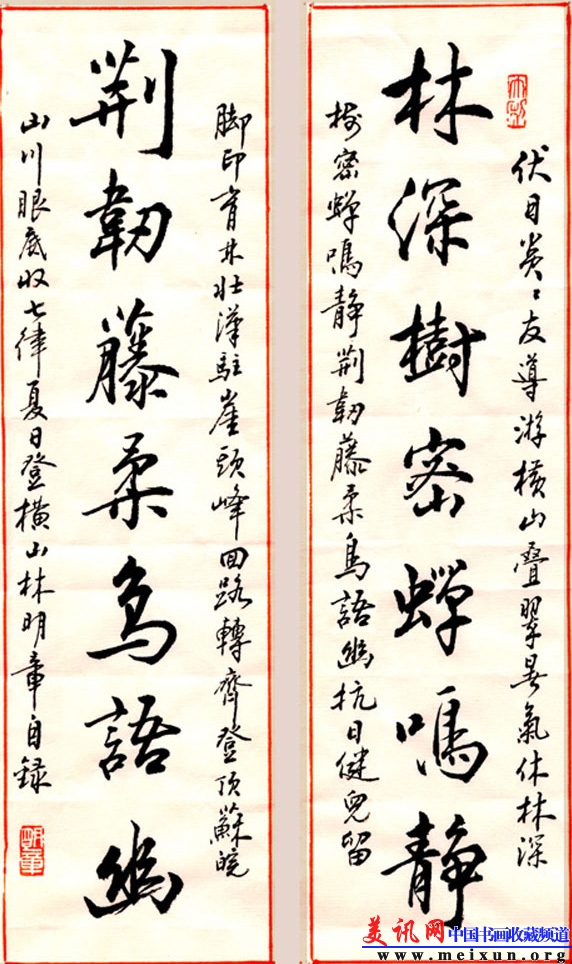 伏日炎〻友導游横山叠翠暑氣休林深
林深樹密蟬鳴靜
樹密蟬鳴静荆韌藤柔鳥語幽抗日健兒留
脚印育林壮漢駐崖頭峰回路轉齊登頂蘇皖
荆韌藤柔鳥語幽
山川眼底收七律夏日登横山林明章自録
明章
美讯网 中国书画收藏频道
www.meixun.org